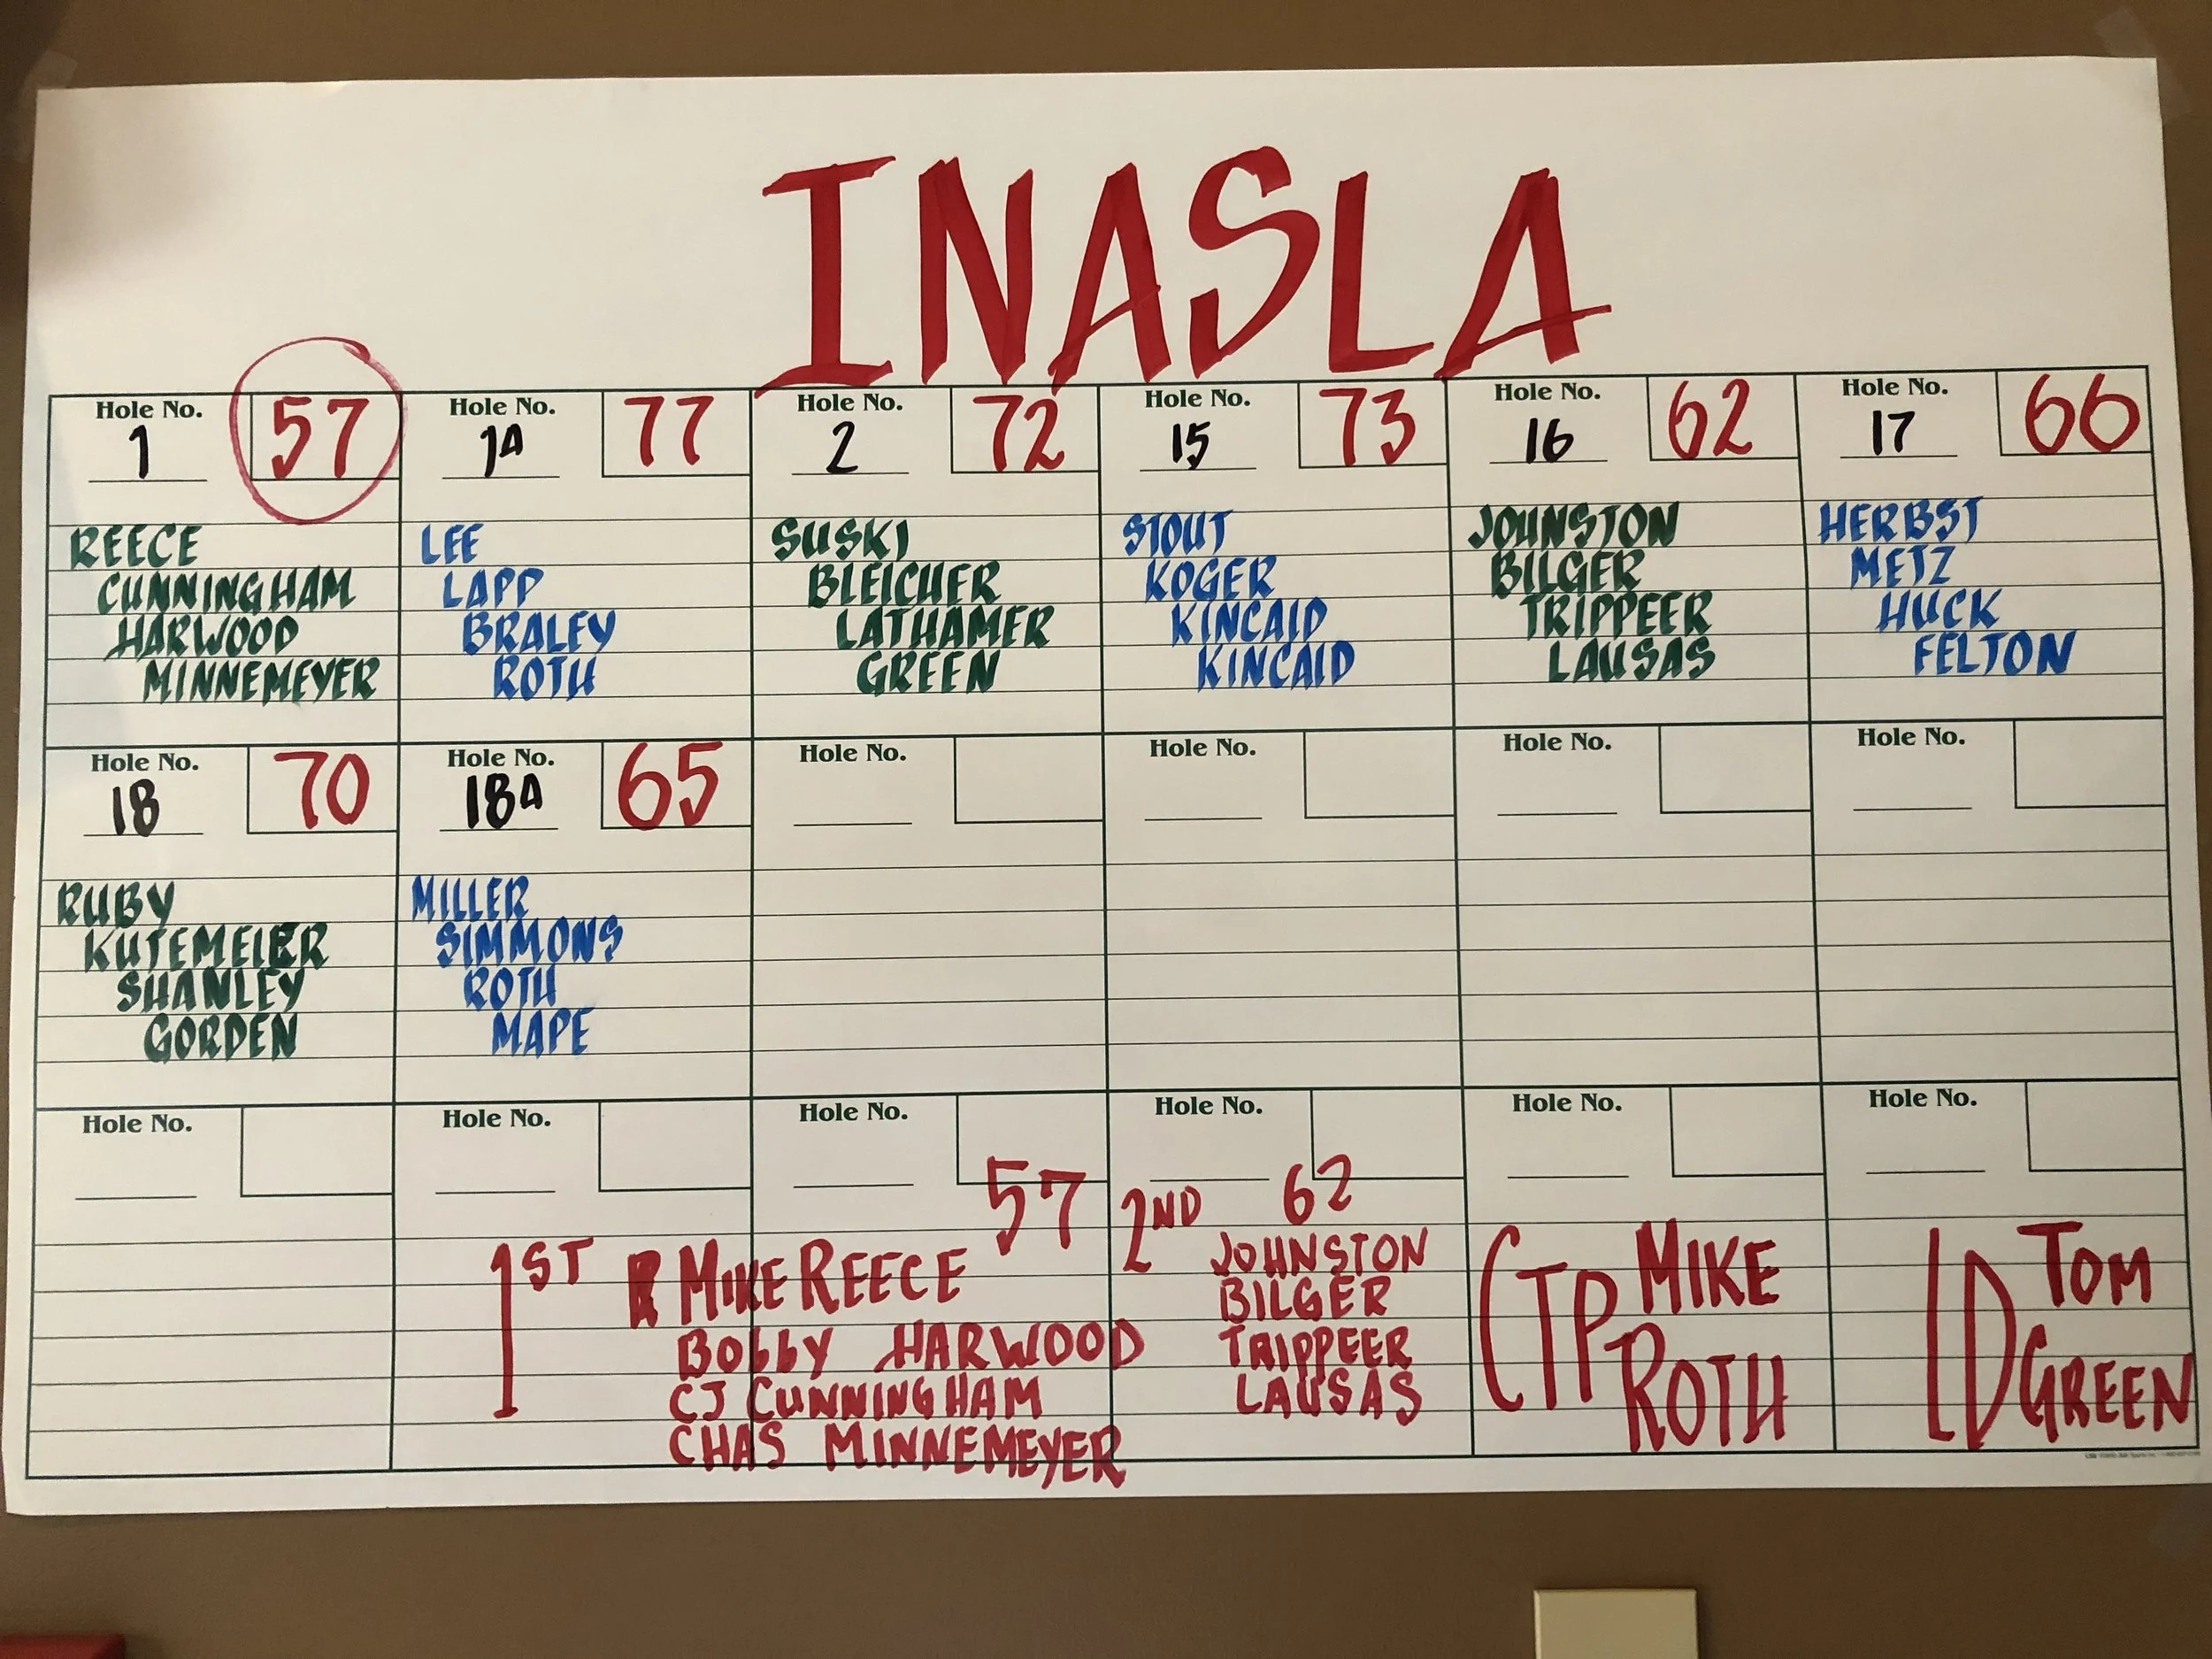 INASLA
Hole No. 1 57
REECE
CUNNINGHAM
HARWOOD
MINNEMEYER
Hole No. 1A 77
LEE
LAPP
BRALEY
ROTH
Hole No. 2 72
SUSKI
BLEICHER
LATHAMER
GREEN
Hole No. 15 73
STOUT
KOGER
KINCAID
KINCAID
Hole No. 16 62
JOHNSTON
BILGER
TRIPPEER
LAUSAS
Hole No. 17 66
HERBST
METZ
HUCK
FELTON
Hole No. 18 70
RUBY
KUTEMEIER
SHANLEY
GORDEN
Hole No. 18A 65
MILLER
SIMMONS
ROTH
MAPE
Hole No.
Hole No.
Hole No.
Hole No.
Hole No.
Hole No.
Hole No.
Hole No.
Hole No.
Hole No.
1ST 57
MIKE REECE
BObby HARWOOD
CJ CUNNINGHAM
CHAS MINNEMEYER
2ND 62
JOHNSTON
BILGER
TRIPPEER
LAUSAS
CTP MIKE
ROTH
LD TOM
GREEN